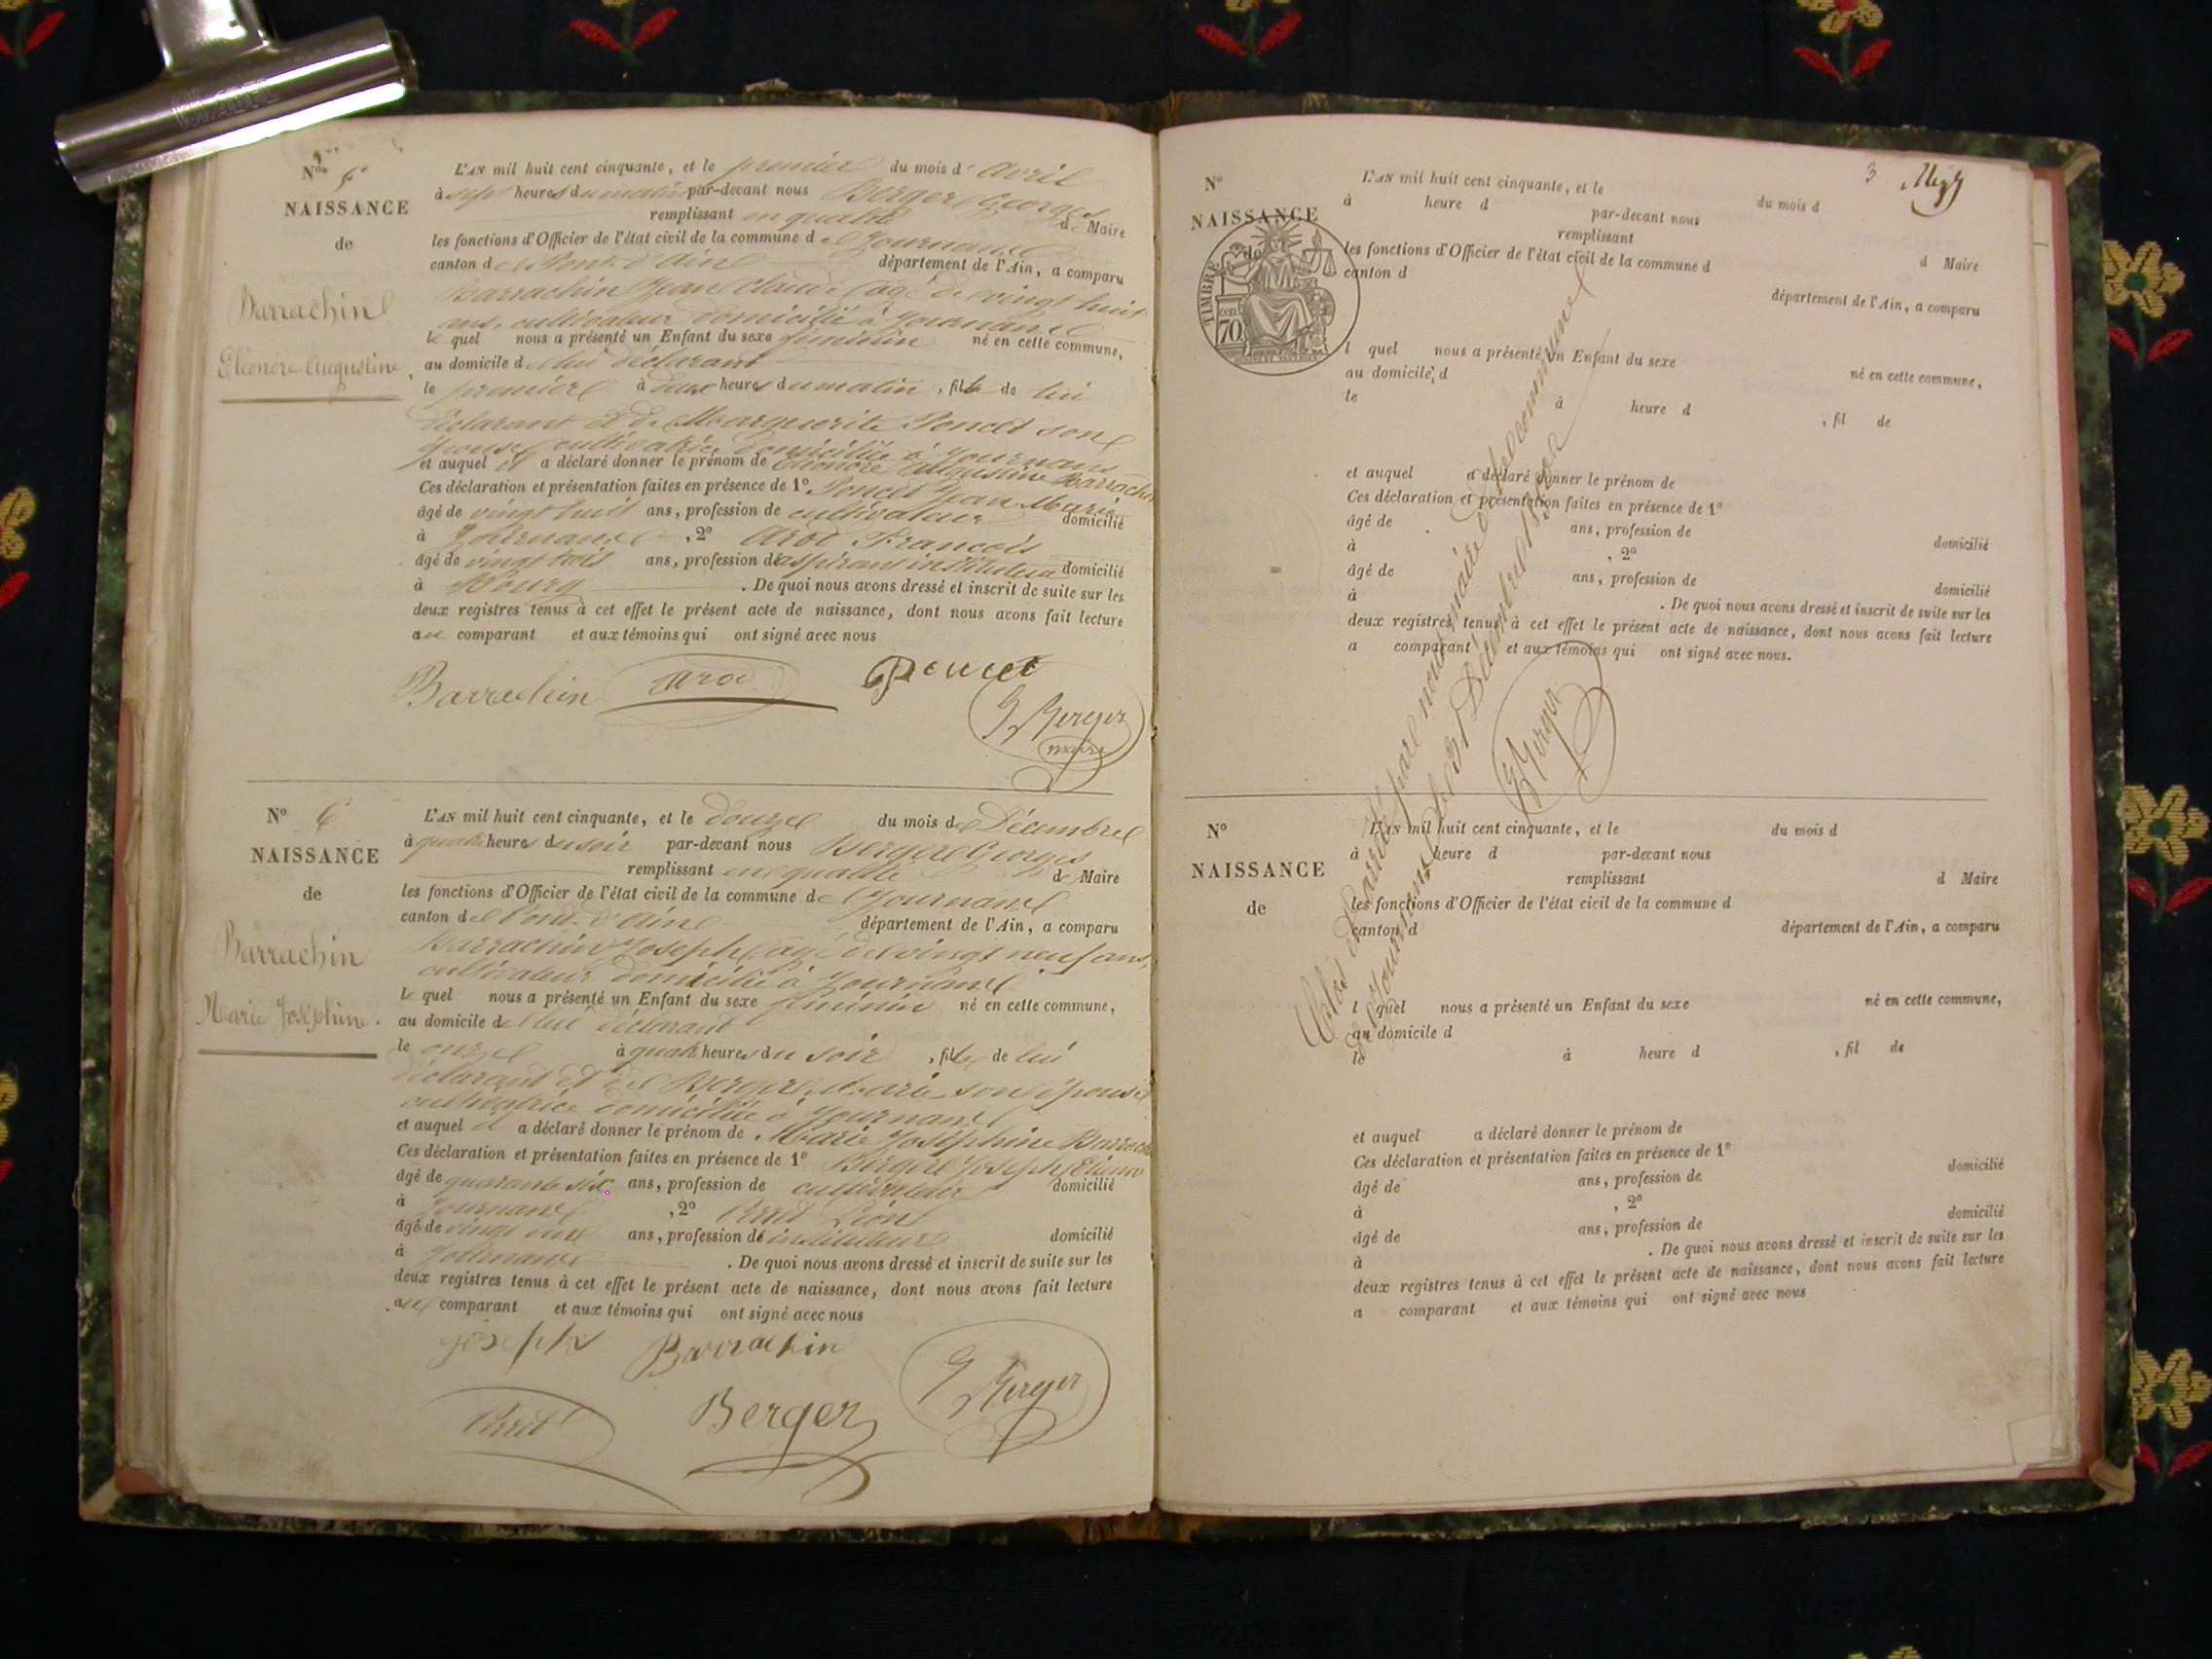 N° 5
NAISSANCE
de
Barrachin
Eléonore Augustine
L'AN mil huit cent cinquante, et le premier du mois d' Avril
à sept heures du matin par-devant nous Berger Georges
remplissant en qualité de Maire
les fonctions d'Officier de l'état civil de la commune de Journans
canton de Pont-d'Ain département de l'Ain, a comparu
Barrachin Jean Claude âgé de vingt huit
ans, cultivateur domicilié à Journans
le quel nous a présenté un Enfant du sexe féminin né en cette commune,
au domicile de lui déclarant
le premier à deux heures du matin, fille de lui
déclarant et de Marguerite Poncet son
épouse cultivatrice domiciliée à Journans
et auquel il a déclaré donner le prénom de Eléonore Augustine Barrachin
Ces déclaration et présentation faites en présence de 1° Poncet Jean Marie
âgé de vingt huit ans, profession de cultivateur domicilié
à Journans, 2° Arod François
âgé de vingt trois ans, profession d'aspirant instituteur domicilié
à Bourg. De quoi nous avons dressé et inscrit de suite sur les
deux registres tenus à cet effet le présent acte de naissance, dont nous avons fait lecture
au comparant et aux témoins qui ont signé avec nous
Barrachin Arod Poncet
G Berger
maire
N° 6
NAISSANCE
de
Barrachin
Marie Joséphine.
L'AN mil huit cent cinquante, et le douze du mois de Décembre
à quatre heures du soir par-devant nous Berger Georges
remplissant en qualité de Maire
les fonctions d'Officier de l'état civil de la commune de Journans
canton de Pont-d'Ain département de l'Ain, a comparu
Barrachin Joseph âgé de vingt neuf ans,
cultivateur domicilié à Journans
le quel nous a présenté un Enfant du sexe féminin né en cette commune,
au domicile de lui déclarant
le onze à quatre heures du soir, fille de lui
déclarant et de Berger Marie son épouse
cultivatrice domiciliée à Journans
et auquel il a déclaré donner le prénom de Marie Joséphine Barrach
Ces déclaration et présentation faites en présence de 1° Berger Joseph
âgé de quarante six ans, profession de cultivateur domicilié
à Journans, 2° Perret Léon
âgé de vingt ans, profession d'instituteur domicilié
à Journans. De quoi nous avons dressé et inscrit de suite sur les
deux registres tenus à cet effet le présent acte de naissance, dont nous avons fait lecture
au comparant et aux témoins qui ont signé avec nous
Joseph Barrachin
G Berger
Perret Berger
3
N°
NAISSANCE
de
TIMBRE
70
L'AN mil huit cent cinquante, et le du mois d
à heure d par-devant nous
remplissant d Maire
les fonctions d'Officier de l'état civil de la commune d
canton d département de l'Ain, a comparu
l quel nous a présenté un Enfant du sexe né en cette commune,
au domicile d
le à heure d , fil de
et auquel a déclaré donner le prénom de
Ces déclaration et présentation faites en présence de 1°
âgé de ans, profession de domicilié
à , 2°
âgé de ans, profession de domicilié
à . De quoi nous avons dressé et inscrit de suite sur les
deux registres tenus à cet effet le présent acte de naissance, dont nous avons fait lecture
a comparant et aux témoins qui ont signé avec nous.
Clos et arrêté par nous maire de la commune
de Journans le 31 Décembre 1850
G Berger
N°
NAISSANCE
de
L'AN mil huit cent cinquante, et le du mois d
à heure d par-devant nous
remplissant d Maire
les fonctions d'Officier de l'état civil de la commune d
canton d département de l'Ain, a comparu
l quel nous a présenté un Enfant du sexe né en cette commune,
au domicile d
le à heure d , fil de
et auquel a déclaré donner le prénom de
Ces déclaration et présentation faites en présence de 1°
âgé de ans, profession de domicilié
à , 2°
âgé de ans, profession de domicilié
à . De quoi nous avons dressé et inscrit de suite sur les
deux registres tenus à cet effet le présent acte de naissance, dont nous avons fait lecture
a comparant et aux témoins qui ont signé avec nous